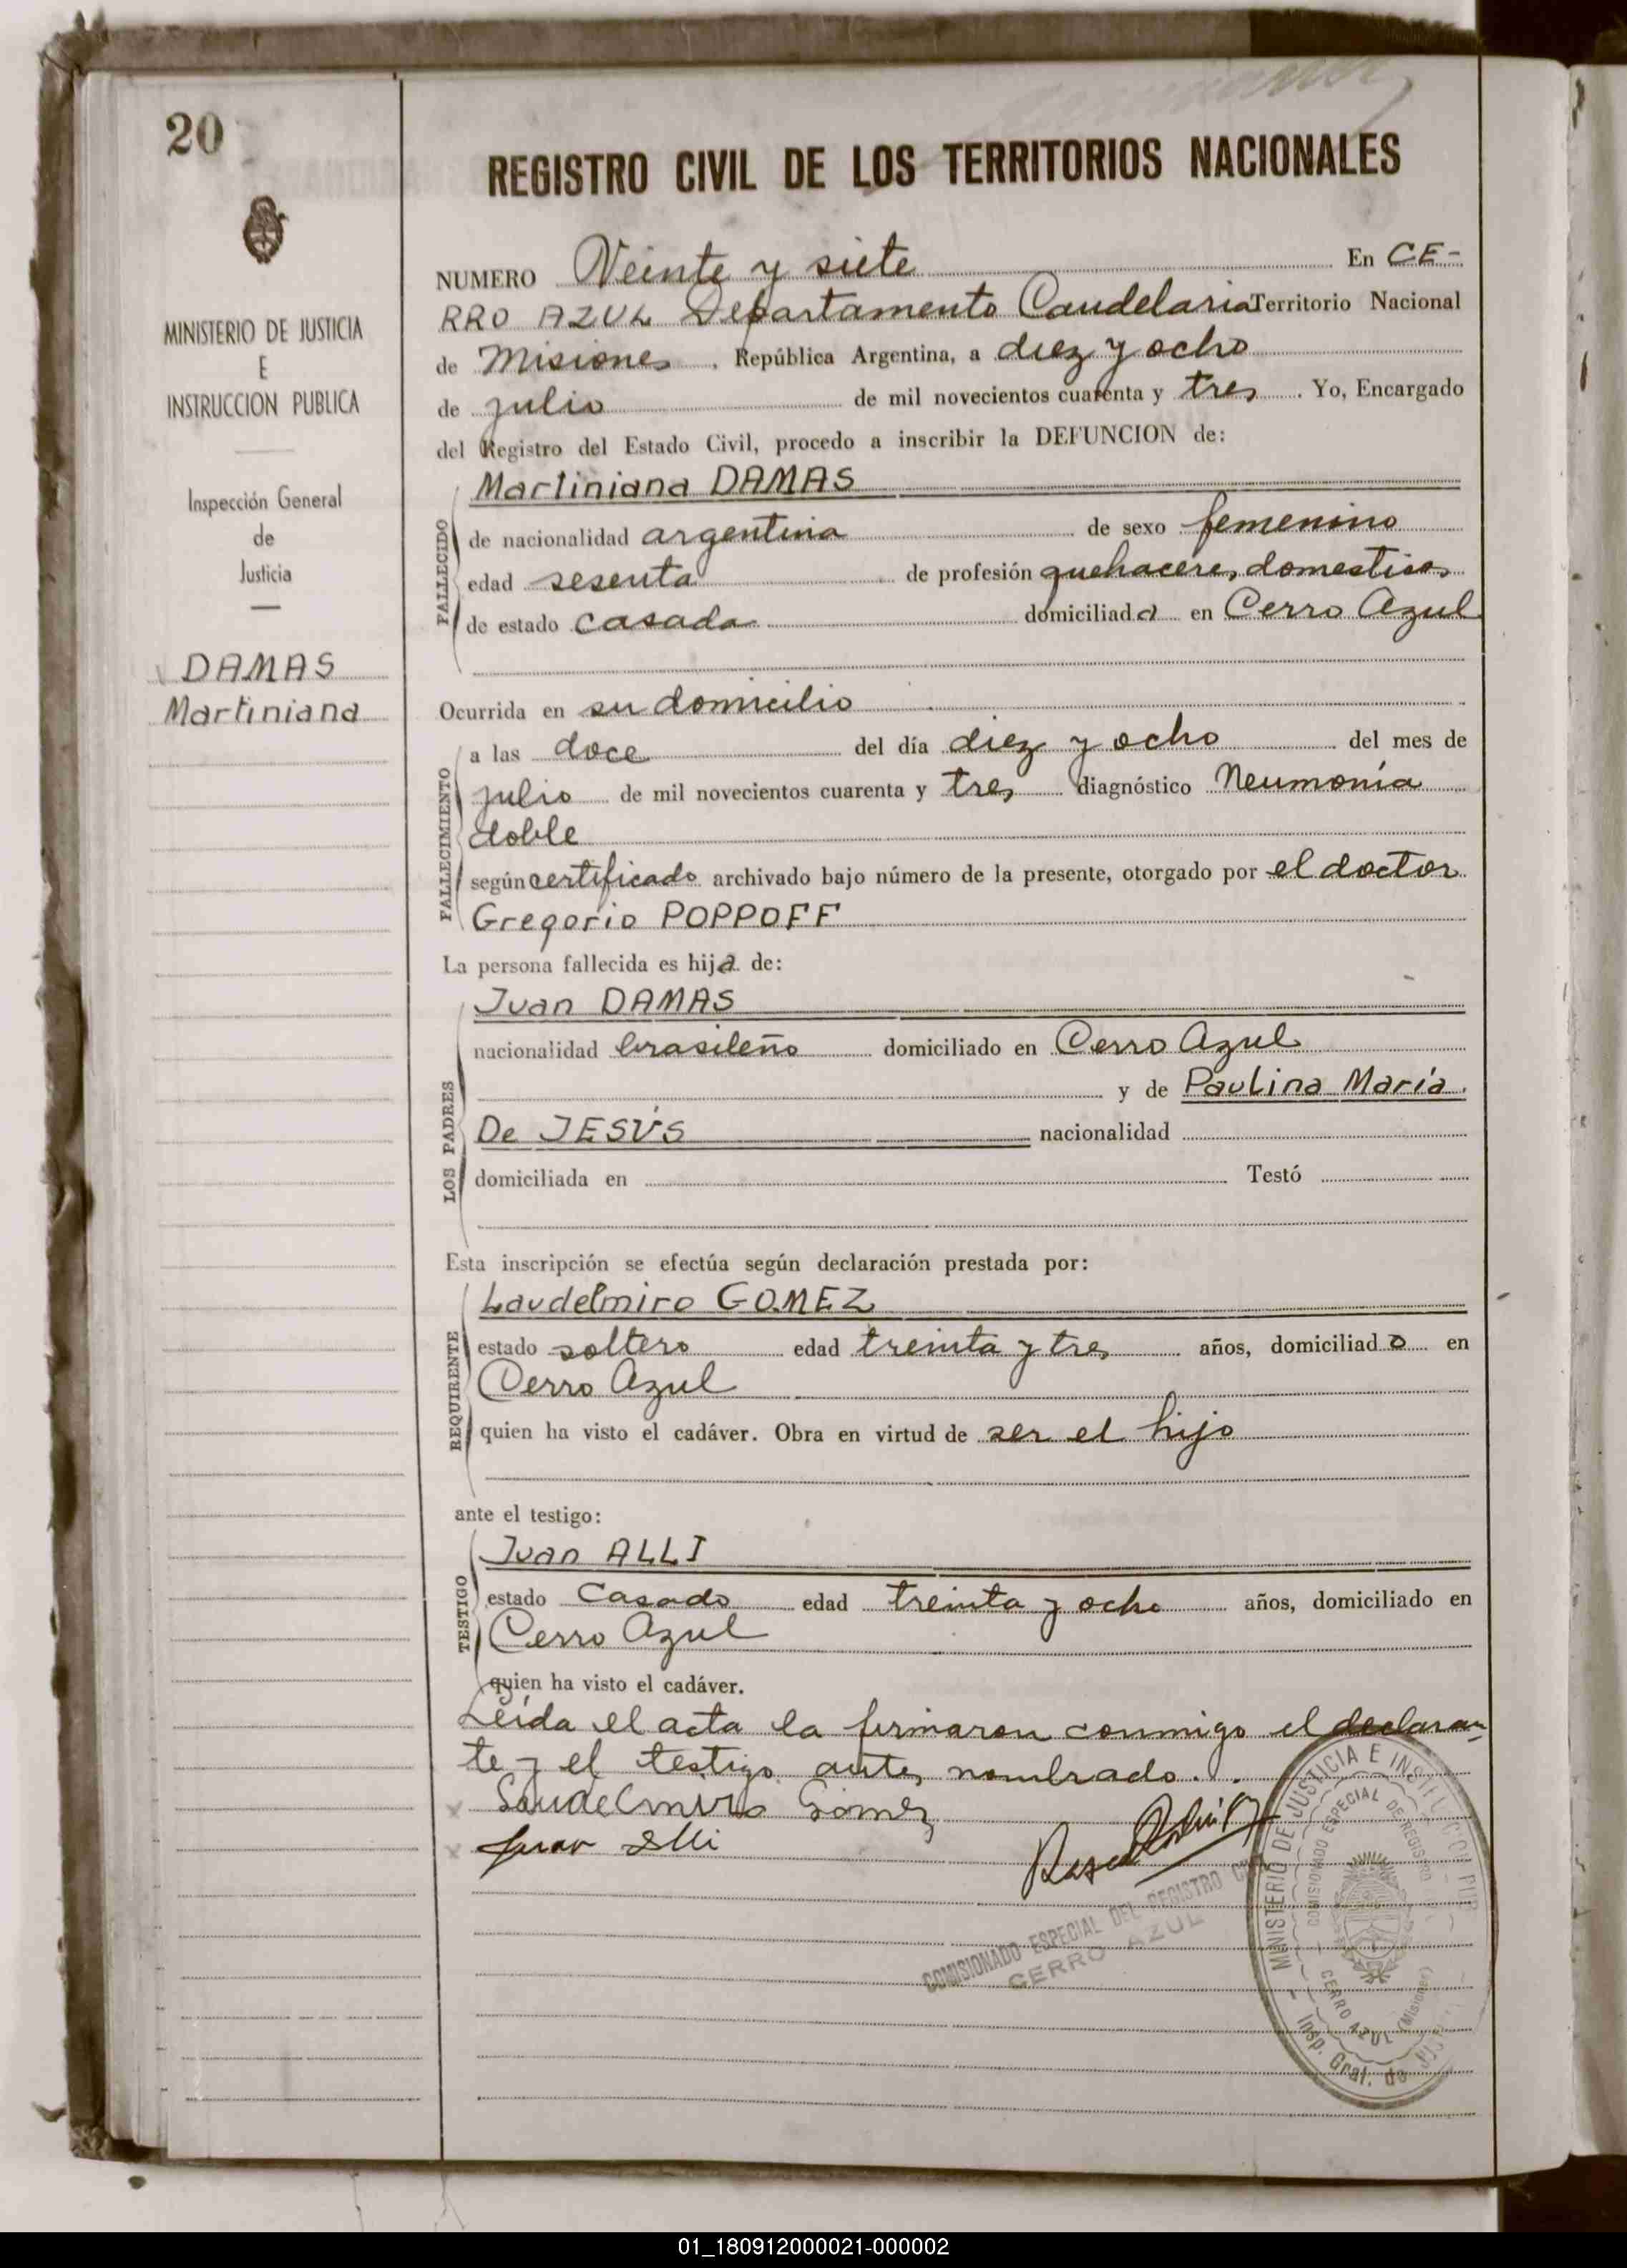 20
MINISTERIO DE JUSTICIA
E
INSTRUCCION PUBLICA
Inspección General
de
Justicia
DAMAS
Martiniana
REGISTRO CIVIL DE LOS TERRITORIOS NACIONALES
NUMERO Veinte y siete En CE-
RRO AZUL Departamento Candelaria Territorio Nacional
de Misiones, República Argentina, a diez y ocho
de julio de mil novecientos cuarenta y tres. Yo, Encargado
del Registro del Estado Civil, procedo a inscribir la DEFUNCION de:
FALLECIDO
Martiniana DAMAS
de nacionalidad argentina de sexo femenino
edad sesenta de profesión quehaceres domesticos
de estado casada domiciliada en Cerro Azul
Ocurrida en su domicilio
FALLECIMIENTO
a las doce del día diez y ocho del mes de
julio de mil novecientos cuarenta y tres diagnóstico Neumonía
doble
según certificado archivado bajo número de la presente, otorgado por el doctor
Gregorio POPPOFF
La persona fallecida es hija de:
LOS PADRES
Juan DAMAS
nacionalidad brasileño domiciliado en Cerro Azul
y de Paulina María
De JESÚS nacionalidad
domiciliada en Testó
Esta inscripción se efectúa según declaración prestada por:
REQUIRENTE
Laudelmiro GOMEZ
estado soltero edad treinta y tres años, domiciliado en
Cerro Azul
quien ha visto el cadáver. Obra en virtud de ser el hijo
ante el testigo:
TESTIGO
Juan ALLI
estado Casado edad treinta y ocho años, domiciliado en
Cerro Azul
quien ha visto el cadáver.
Leída el acta la firmaron conmigo el declaran-
te y el testigo antes nombrado.
Laudelmiro Gomez
Juan Alli
COMISIONADO ESPECIAL DEL REGISTRO
CERRO AZUL
MINISTERIO DE JUSTICIA E
COMISIONADO ESPECIAL DE REGISTRO
CERRO AZUL (Misiones)
Insp. Gral. de
01_180912000021-000002